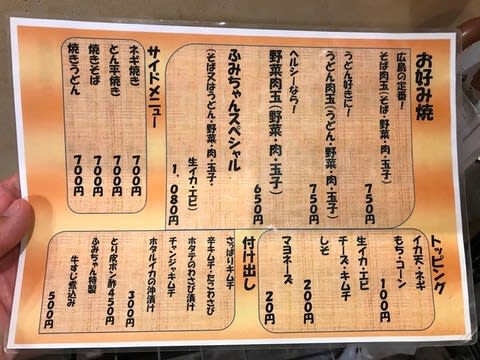 お好み焼
広島の定番!
そば肉玉(そば・野菜・肉・玉子)
750円
うどん好きに!
うどん肉玉(うどん・野菜・肉・玉子)
750円
ヘルシーなら!
野菜肉玉(野菜・肉・玉子)
650円
ふみちゃんスペシャル
(そば又はうどん・野菜・肉・玉子・
生イカ・エビ)
1,080円
サイドメニュー
ネギ焼き 700円
とん平焼き 700円
焼きそば 700円
焼きうどん 700円
トッピング
イカ天・ネギ
もち・コーン
100円
生イカ・エビ
チーズ・キムチ
200円
しそ
マヨネーズ 20円
付け出し
さっぱりキムチ
辛キムチ・たこわさび
ホタテのわさび漬け
チャンジャキムチ
ホタルイカの沖漬け
300円
とり皮ポン酢450円
ふみちゃん特製
牛すじ煮込み
500円